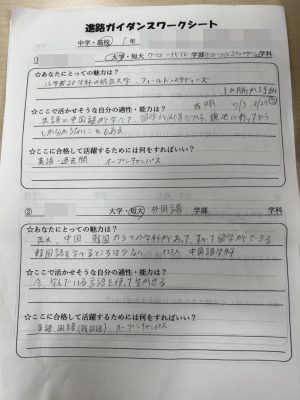 進路ガイダンスワークシート
中学・高校 1年
① 大学・短大 グローバル 学部 グローバルコミュニケーション 学科
☆あなたにとっての魅力は?
12学部20学科の総合大学、フィールド・スタディーズ
1か月
☆ここで活かせそうな自分の適性・能力は?
英語と中国語が学べて、留学も
しか分からないこともある
☆ここに合格して活躍するためには何をすればいい?
英語・過去問 オープンキャンパス
② 大学・短大 外国語 学部 学科
☆あなたにとっての魅力は?
英米、中国、韓国の3つの学科があって、すべて留学ができる
韓国語を学べるところは少ない 中国語学科
☆ここで活かせそうな自分の適性・能力は?
今、学んでいる言語を使って生かせる
☆ここに合格して活躍するためには何をすればいい?
英語 国語 オープンキャンパス